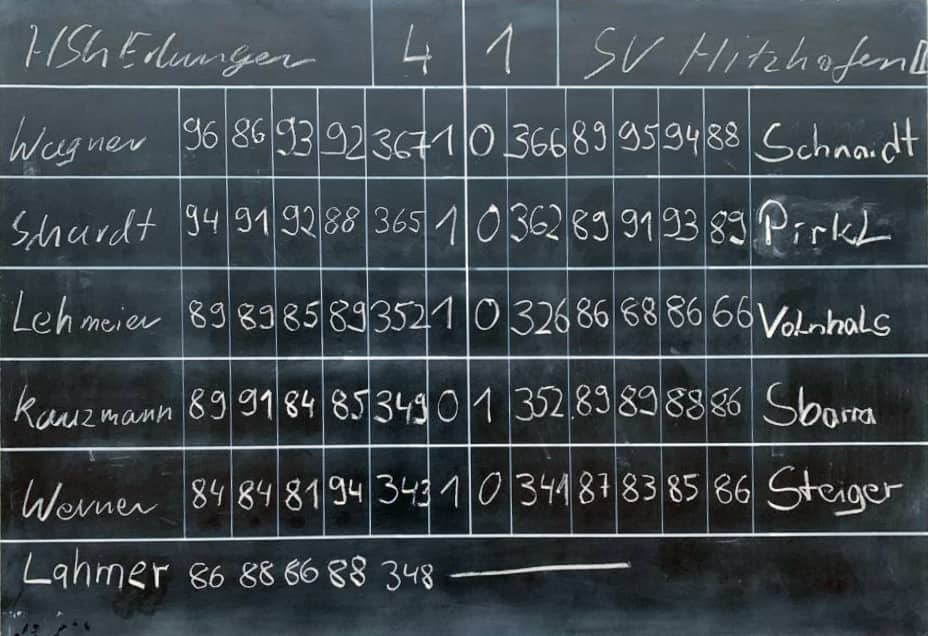 HSh Erlungen 4 1 SV Hitzhofen II
Wagner 96 86 93 92 367 1 0 366 89 95 94 88 Schmidt
Shardt 94 91 92 88 365 1 0 362 89 91 93 89 Pirkl
Lehmeier 89 89 85 89 352 1 0 326 86 88 86 66 Volnhals
Kauzmann 89 91 84 85 349 0 1 352 89 89 88 86 Sbarra
Werner 84 84 81 94 343 1 0 341 87 83 85 86 Steiger
Lahmer 86 88 86 88 348